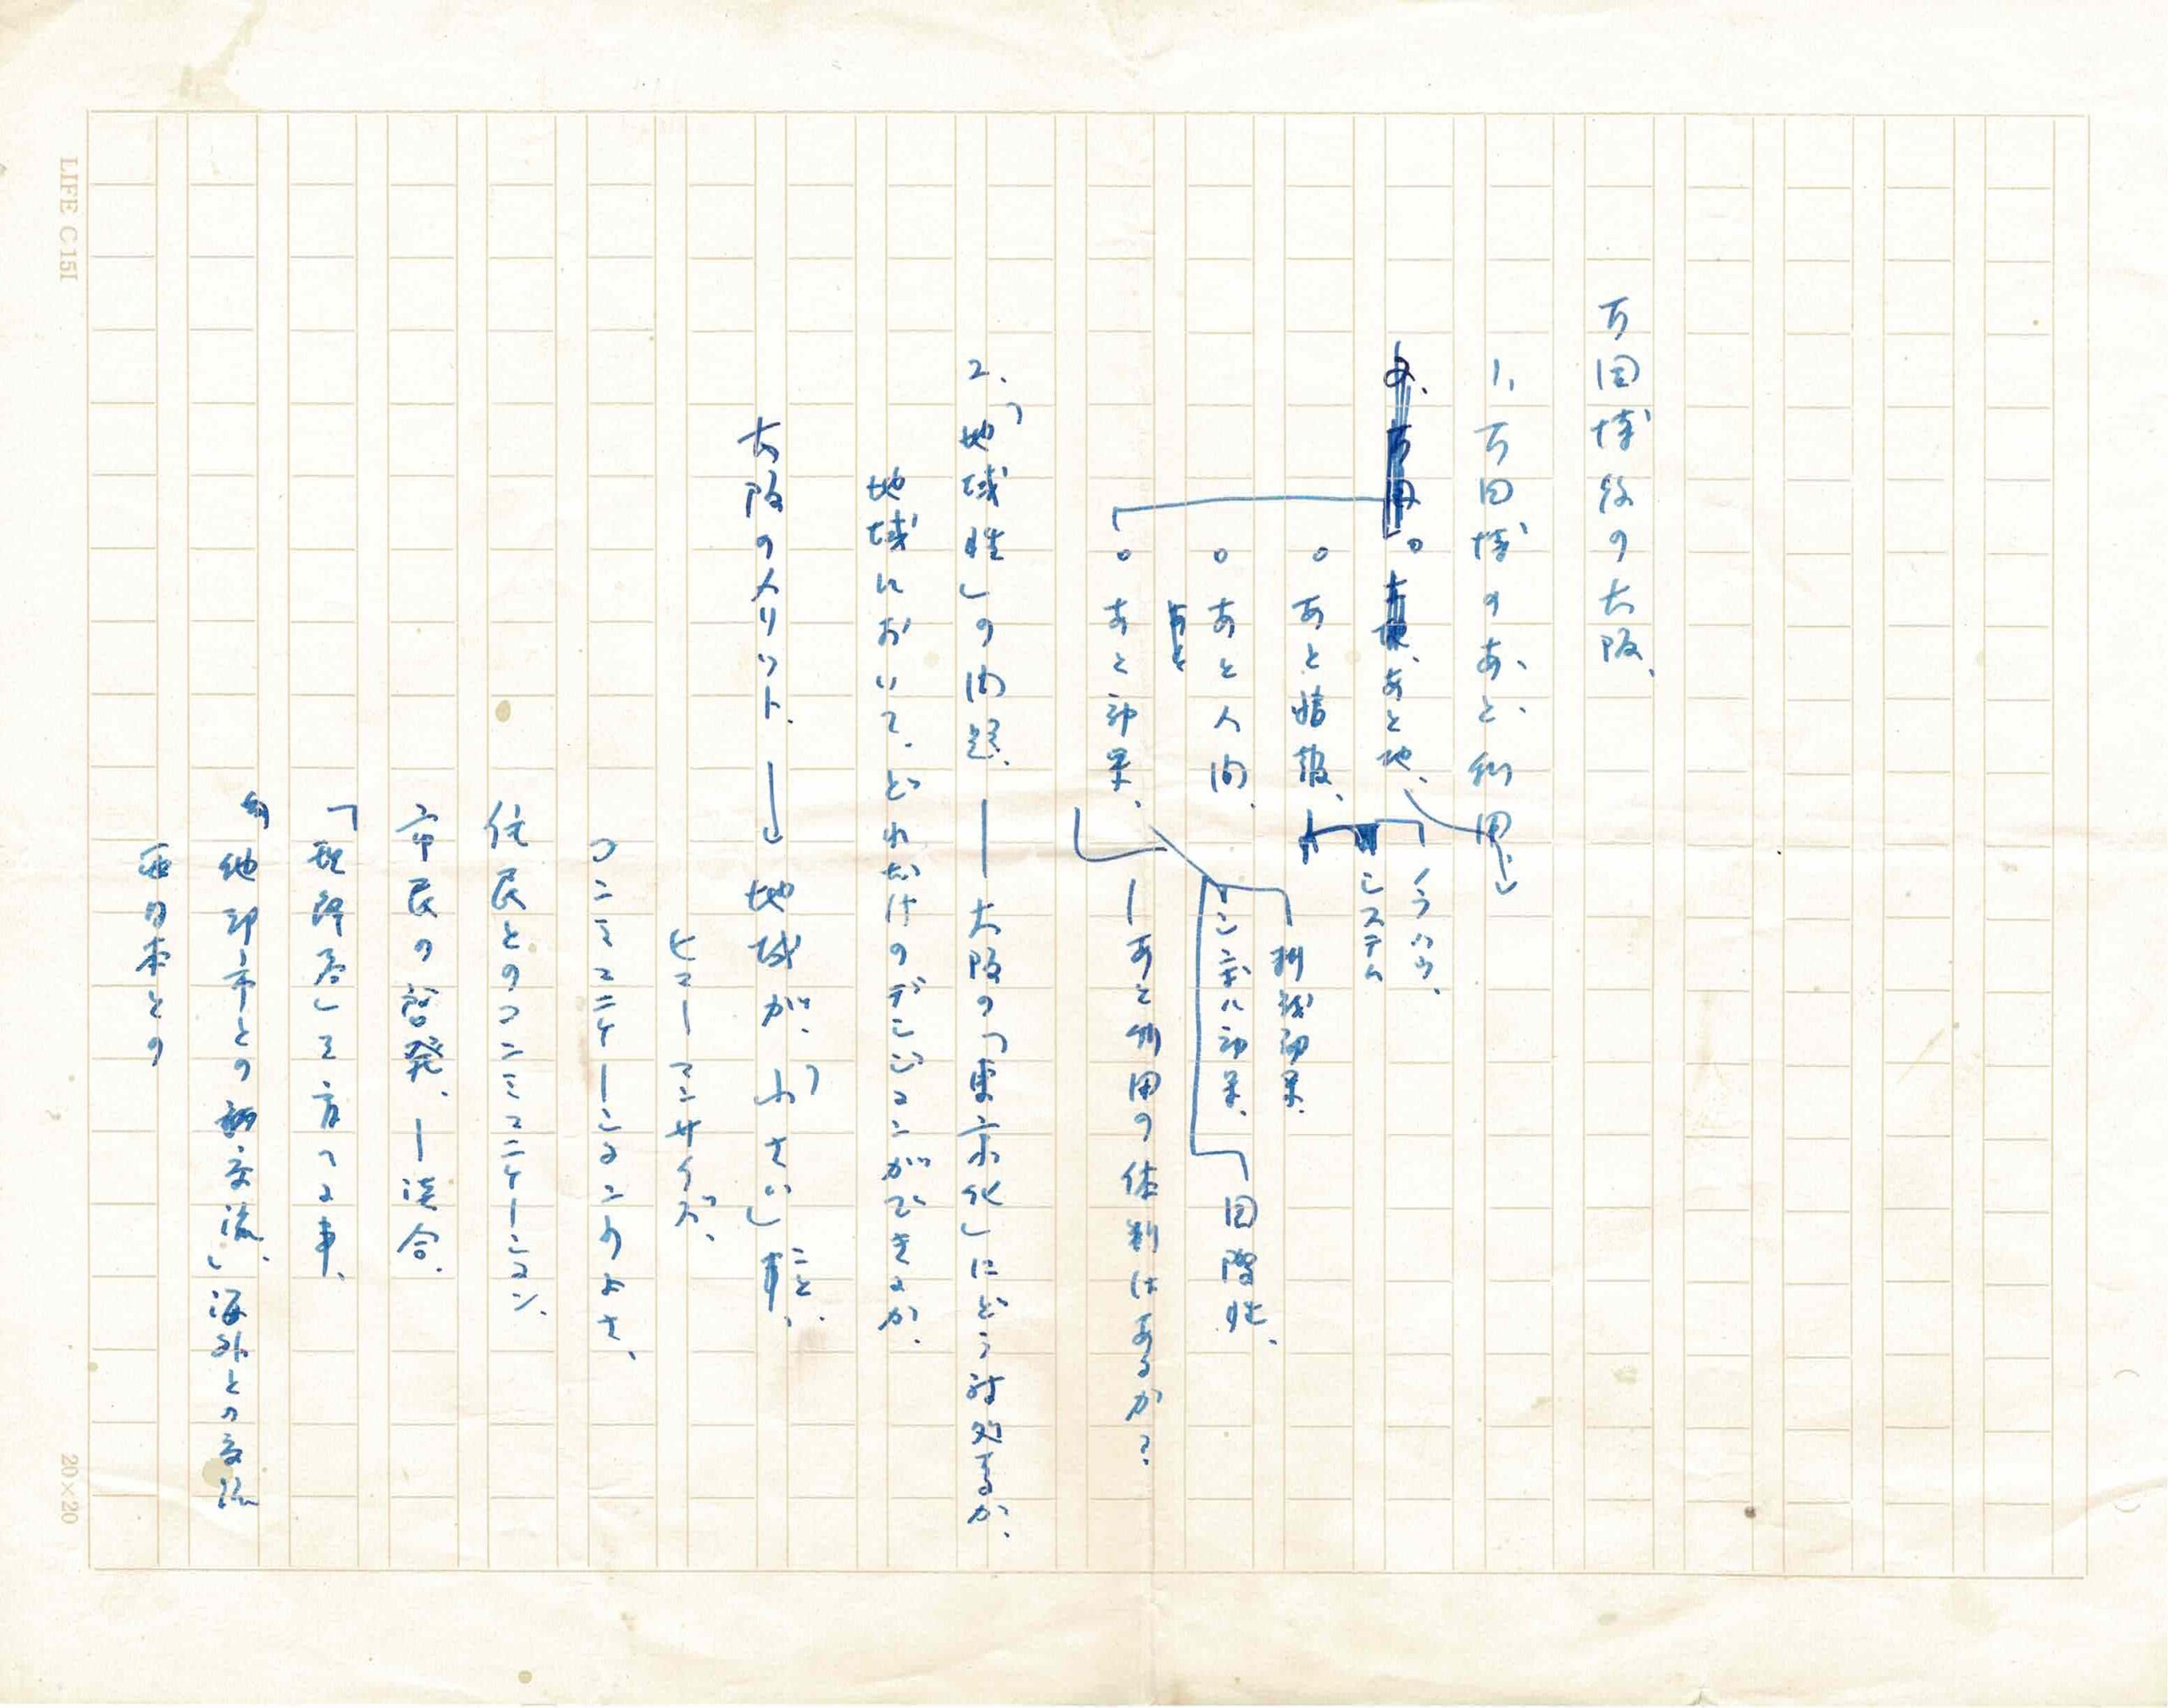 万国博後の大阪、
1、万国博のあと利用、
。あと地、
ノウハウ、
システム
。あと情報、
。あと人間、
。あと効果、
刺戟効果、
シンボル効果、
国際性、
―あと利用の体制はあるか?
2、「地域性」の問題、―大阪の「東京化」にどう対処するか、
地域において、どれだけのデシジョンができるか、
大阪のメリット、→地域が、「小さい」こと、
ヒューマンサイズ、
コンミュニケーションのよさ、
住民とのコンミュニケーション、
市民の啓発、―談合、
他都市との交流、」海外との交流
西日本との
LIFE C151
20×20